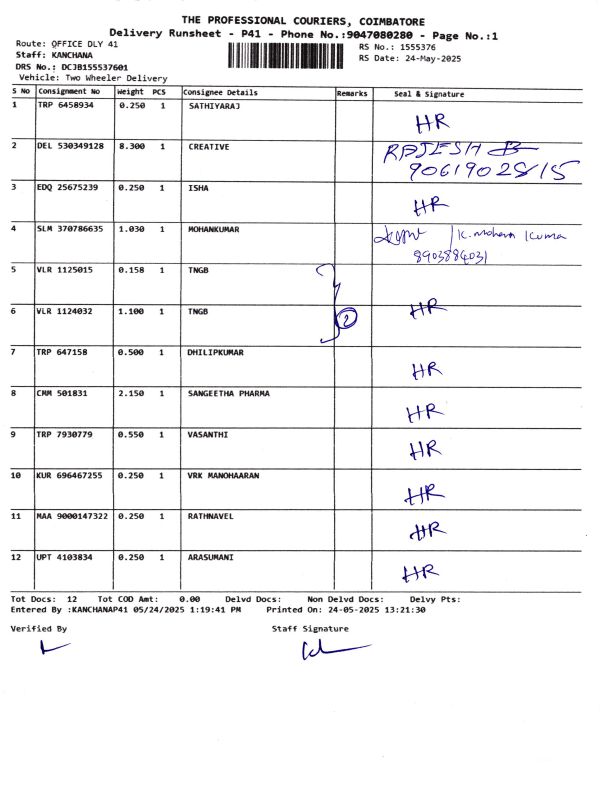 THE PROFESSIONAL COURIERS, COIMBATORE
Delivery Runsheet - P41 - Phone No.:9047080280 - Page No.:1
Route: OFFICE DLY 41
RS No.: 1555376
Staff: KANCHANA
RS Date: 24-May-2025
DRS No.: DCJB155537601
Vehicle: Two Wheeler Delivery
S No Consignment No Weight PCS Consignee Details Remarks Seal & Signature
1 TRP 6458934 0.250 1 SATHIYARAJ HR
2 DEL 530349128 8.300 1 CREATIVE RAJESH
9061902815
3 EDQ 25675239 0.250 1 ISHA HR
4 SLM 370786635 1.030 1 MOHANKUMAR K. Mohana Kuma
8903884031
5 VLR 1125015 0.158 1 TNGB
6 VLR 1124032 1.100 1 TNGB 2 HR
7 TRP 647158 0.500 1 DHILIPKUMAR HR
8 CMM 501831 2.150 1 SANGEETHA PHARMA HR
9 TRP 7930779 0.550 1 VASANTHI HR
10 KUR 696467255 0.250 1 VRK MANOHAARAN HR
11 MAA 9000147322 0.250 1 RATHNAVEL HR
12 UPT 4103834 0.250 1 ARASUMANI HR
Tot Docs: 12 Tot COD Amt: 0.00 Delvd Docs: Non Delvd Docs: Delvy Pts:
Entered By :KANCHANAP41 05/24/2025 1:19:41 PM Printed On: 24-05-2025 13:21:30
Verified By Staff Signature